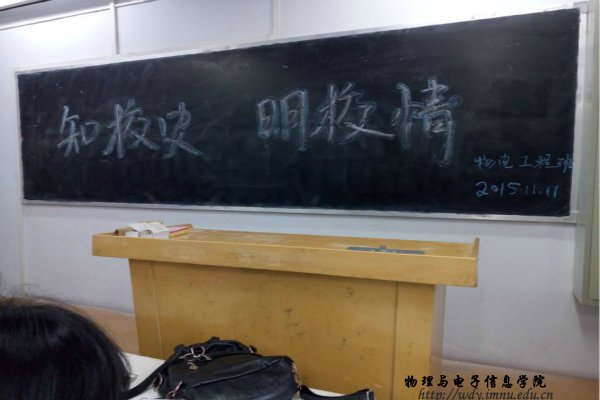 知校史 明校情
物电工程班
2015.11.11
物理与电子信息学院
http://wdy.imnu.edu.cn